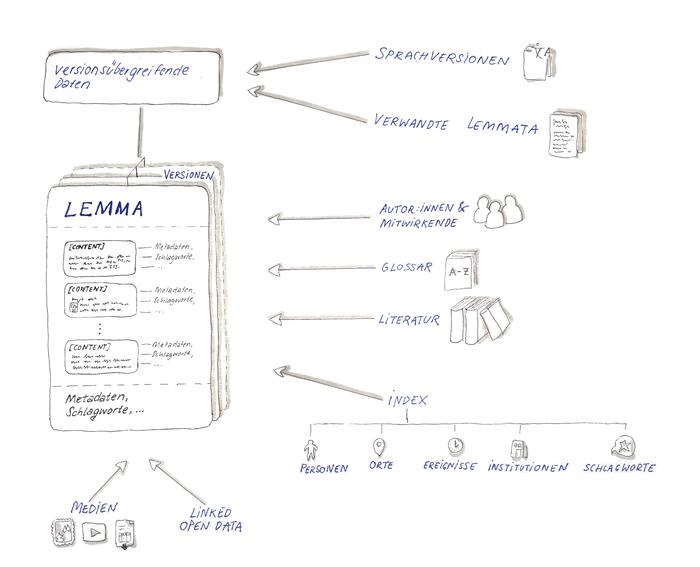 Versionsübergreifende
Daten
SPRACHVERSIONEN
VERWANDTE LEMMATA
VERSIONEN
LEMMA
[CONTENT]
Metadaten,
Schlagworte,
...
[CONTENT]
Metadaten,
Schlagworte,
...
[CONTENT]
Metadaten,
Schlagworte,
...
Metadaten,
Schlagworte, ...
AUTOR:INNEN &
MITWIRKENDE
GLOSSAR
A-Z
LITERATUR
INDEX
PERSONEN
ORTE
EREIGNISSE
INSTITUTIONEN
SCHLAGWORTE
MEDIEN
LINKED
OPEN DATA